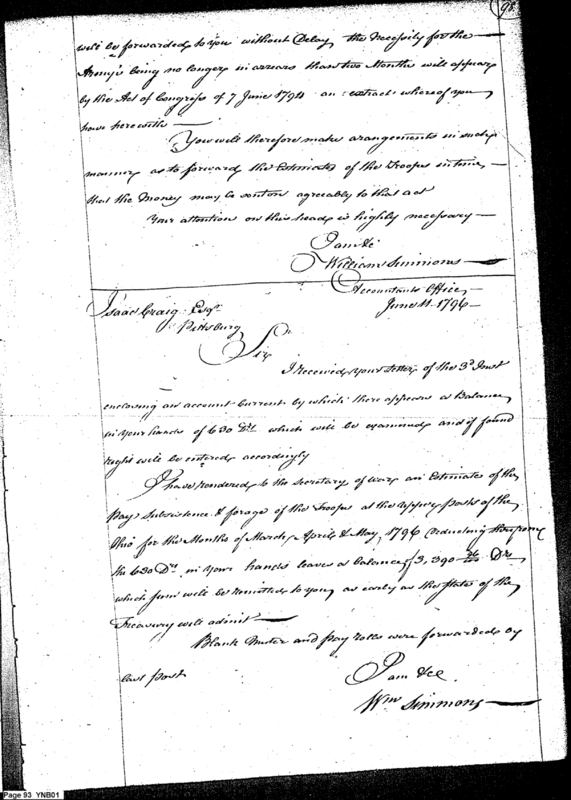 98
will be forwarded to you without Delay, the necessity for the
Army's being no longer in arrears than two Months will appear
by the Act of Congress of 7 June 1794 an extract whereof you
have herewith
You will therefore make arangements in such
manner as to forward the Estimates of the Troops in time,
that the Money may be sent on agreeably to that act
Your attention on this head is highly necessary
I am &c
William Simmons
Accountants Office
June 11. 1796
Isaac Craig Esqr
Pittsburg
Sir
I received your Letter of the 3d Inst
enclosing an account Current by which there appears a Balance
in your hands of 630 Drs which will be examined and if found
right will be entered accordingly
I have rendered to the Secretary of War an Estimate of the
Pay Subsistence & forage of the Troops at the upper Posts of the
Ohio for the Months of March, April & May, 1796 deducting therefrom
the 630 Drs in your hands leaves a balance of 3,390 Drs
which sum will be remitted to you as early as the state of the
Treasury will admit
Blank Muster and pay rolls were forwarded by
last post
I am &c
Wm Simmons
Page 93 YNB01